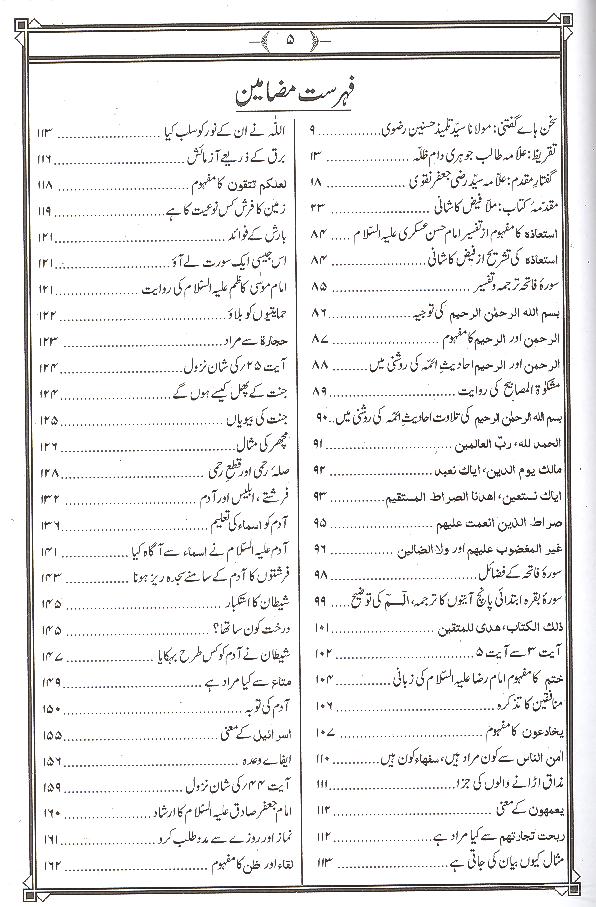 ۵
فہرست مضامین
سخن ہائے گفتنی: مولانا سیّد تلمیذ حسنین رضوی ۹
تقریظ: علّامہ طالب جوہری دام ظلّہ ۱۳
گفتارِ مقدم: علّامہ سیّد رضی جعفر نقوی ۱۸
مقدمۂ کتاب: ملّا فیض کاشانی ۲۳
استعاذہ کا مفہوم از تفسیر امام حسن عسکری علیہ السّلام ۸۴
استعاذہ کی تشریح از فیض کاشانی ۸۴
سورۂ فاتحہ ترجمہ و تفسیر ۸۵
بسم الله الرحمٰن الرحیم کی توجیہ ۸۶
الرحمن اور الرحیم کا مفہوم ۸۷
الرحمن اور الرحیم احادیثِ ائمّہ کی روشنی میں ۸۸
مشکوٰۃ المصابیح کی روایت ۸۹
بسم الله الرحمٰن الرحیم کی تلاوت احادیثِ ائمّہ کی روشنی میں ۹۰
الحمد لله، ربّ العالمین ۹۱
مالك یوم الدین، ایاك نعبد ۹۲
ایاك نستعین، اهدنا الصراط المستقیم ۹۳
صراط الذین انعمت علیهم ۹۵
غیر المغضوب علیهم اور ولا الضالین ۹۶
سورۂ فاتحہ کے فضائل ۹۸
سورۂ بقرہ ابتدائی پانچ آیتوں کا ترجمہ، الٓـمٓ کی توضیح ۹۹
ذلك الكتاب، هدى للمتقین ۱۰۱
آیت ۳ سے آیت ۵ ۱۰۲
ختم کا مفہوم امام رضا علیہ السّلام کی زبانی ۱۰۴
منافقین کا تذکرہ ۱۰۶
یخادعون کا مفہوم ۱۰۷
امن الناس سے کون مراد ہیں، سفهاء کون ہیں ۱۱۰
مذاق اڑانے والوں کی جزا ۱۱۱
یعمهون کے معنی ۱۱۲
ربحت تجارتهم سے کیا مراد ہے ۱۱۲
مثال کیوں بیان کی جاتی ہے ۱۱۳
اللّٰہ نے ان کے نور کو سلب کیا ۱۱۳
برق کے ذریعے آزمائش ۱۱۶
لعلكم تتقون کا مفہوم ۱۱۸
زمین کا فرش کس نوعیت کا ہے ۱۱۹
بارش کے فوائد ۱۲۱
اس جیسی ایک سورت لے آؤ ۱۲۱
امام موسٰی کاظم علیہ السّلام کی روایت ۱۲۱
حمایتیوں کو بلاؤ ۱۲۲
حجارة سے مراد ۱۲۳
آیت ۲۵ر کی شان نزول ۱۲۴
جنت کے پھل کیسے ہوں گے ۱۲۴
جنت کی بیویاں ۱۲۵
مچھر کی مثال ۱۲۶
صلۂ رحمی اور قطع رحمی ۱۲۸
فرشتے، ابلیس اور آدم ۱۳۲
آدم کو اسماء کی تعلیم ۱۳۶
آدم علیہ السّلام نے اسماء سے آگاہ کیا ۱۴۱
فرشتوں کا آدم کے سامنے سجدہ ریز ہونا ۱۴۳
شیطان کا استکبار ۱۴۵
درخت کون سا تھا؟ ۱۴۵
شیطان نے آدم کو کس طرح بہکایا ۱۴۷
متاع سے کیا مراد ہے ۱۴۹
آدم کی توبہ ۱۵۰
اسرائیل کے معنی ۱۵۵
ایفائے وعدہ ۱۵۶
آیت ۴۴ر کی شان نزول ۱۵۹
امام جعفر صادق علیہ السّلام کا ارشاد ۱۶۰
نماز اور روزے سے مدد طلب کرو ۱۶۱
لقاء اور ظن کا مفہوم ۱۶۲